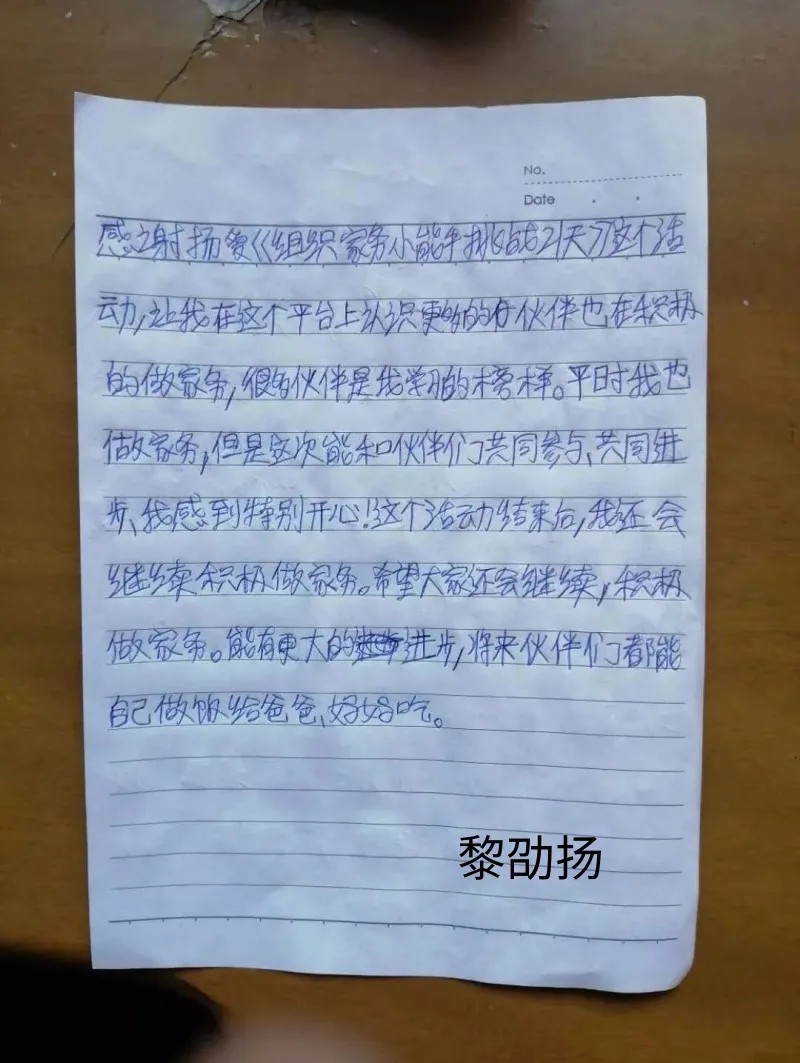 No.
Date
感谢扬爱《组织家务小能手挑战21天》这个活
动,让我在这个平台上认识更多的伙伴也在积极
的做家务,很多伙伴是我学习的榜样。平时我也
做家务,但是这次能和伙伴们共同参与、共同进
步、我感到特别开心!这个活动结束后,我还会
继续积极做家务。希望大家还会继续,积极
做家务。能有更大的进步,将来伙伴们都能
自己做饭给爸爸、妈妈吃。
黎劭扬